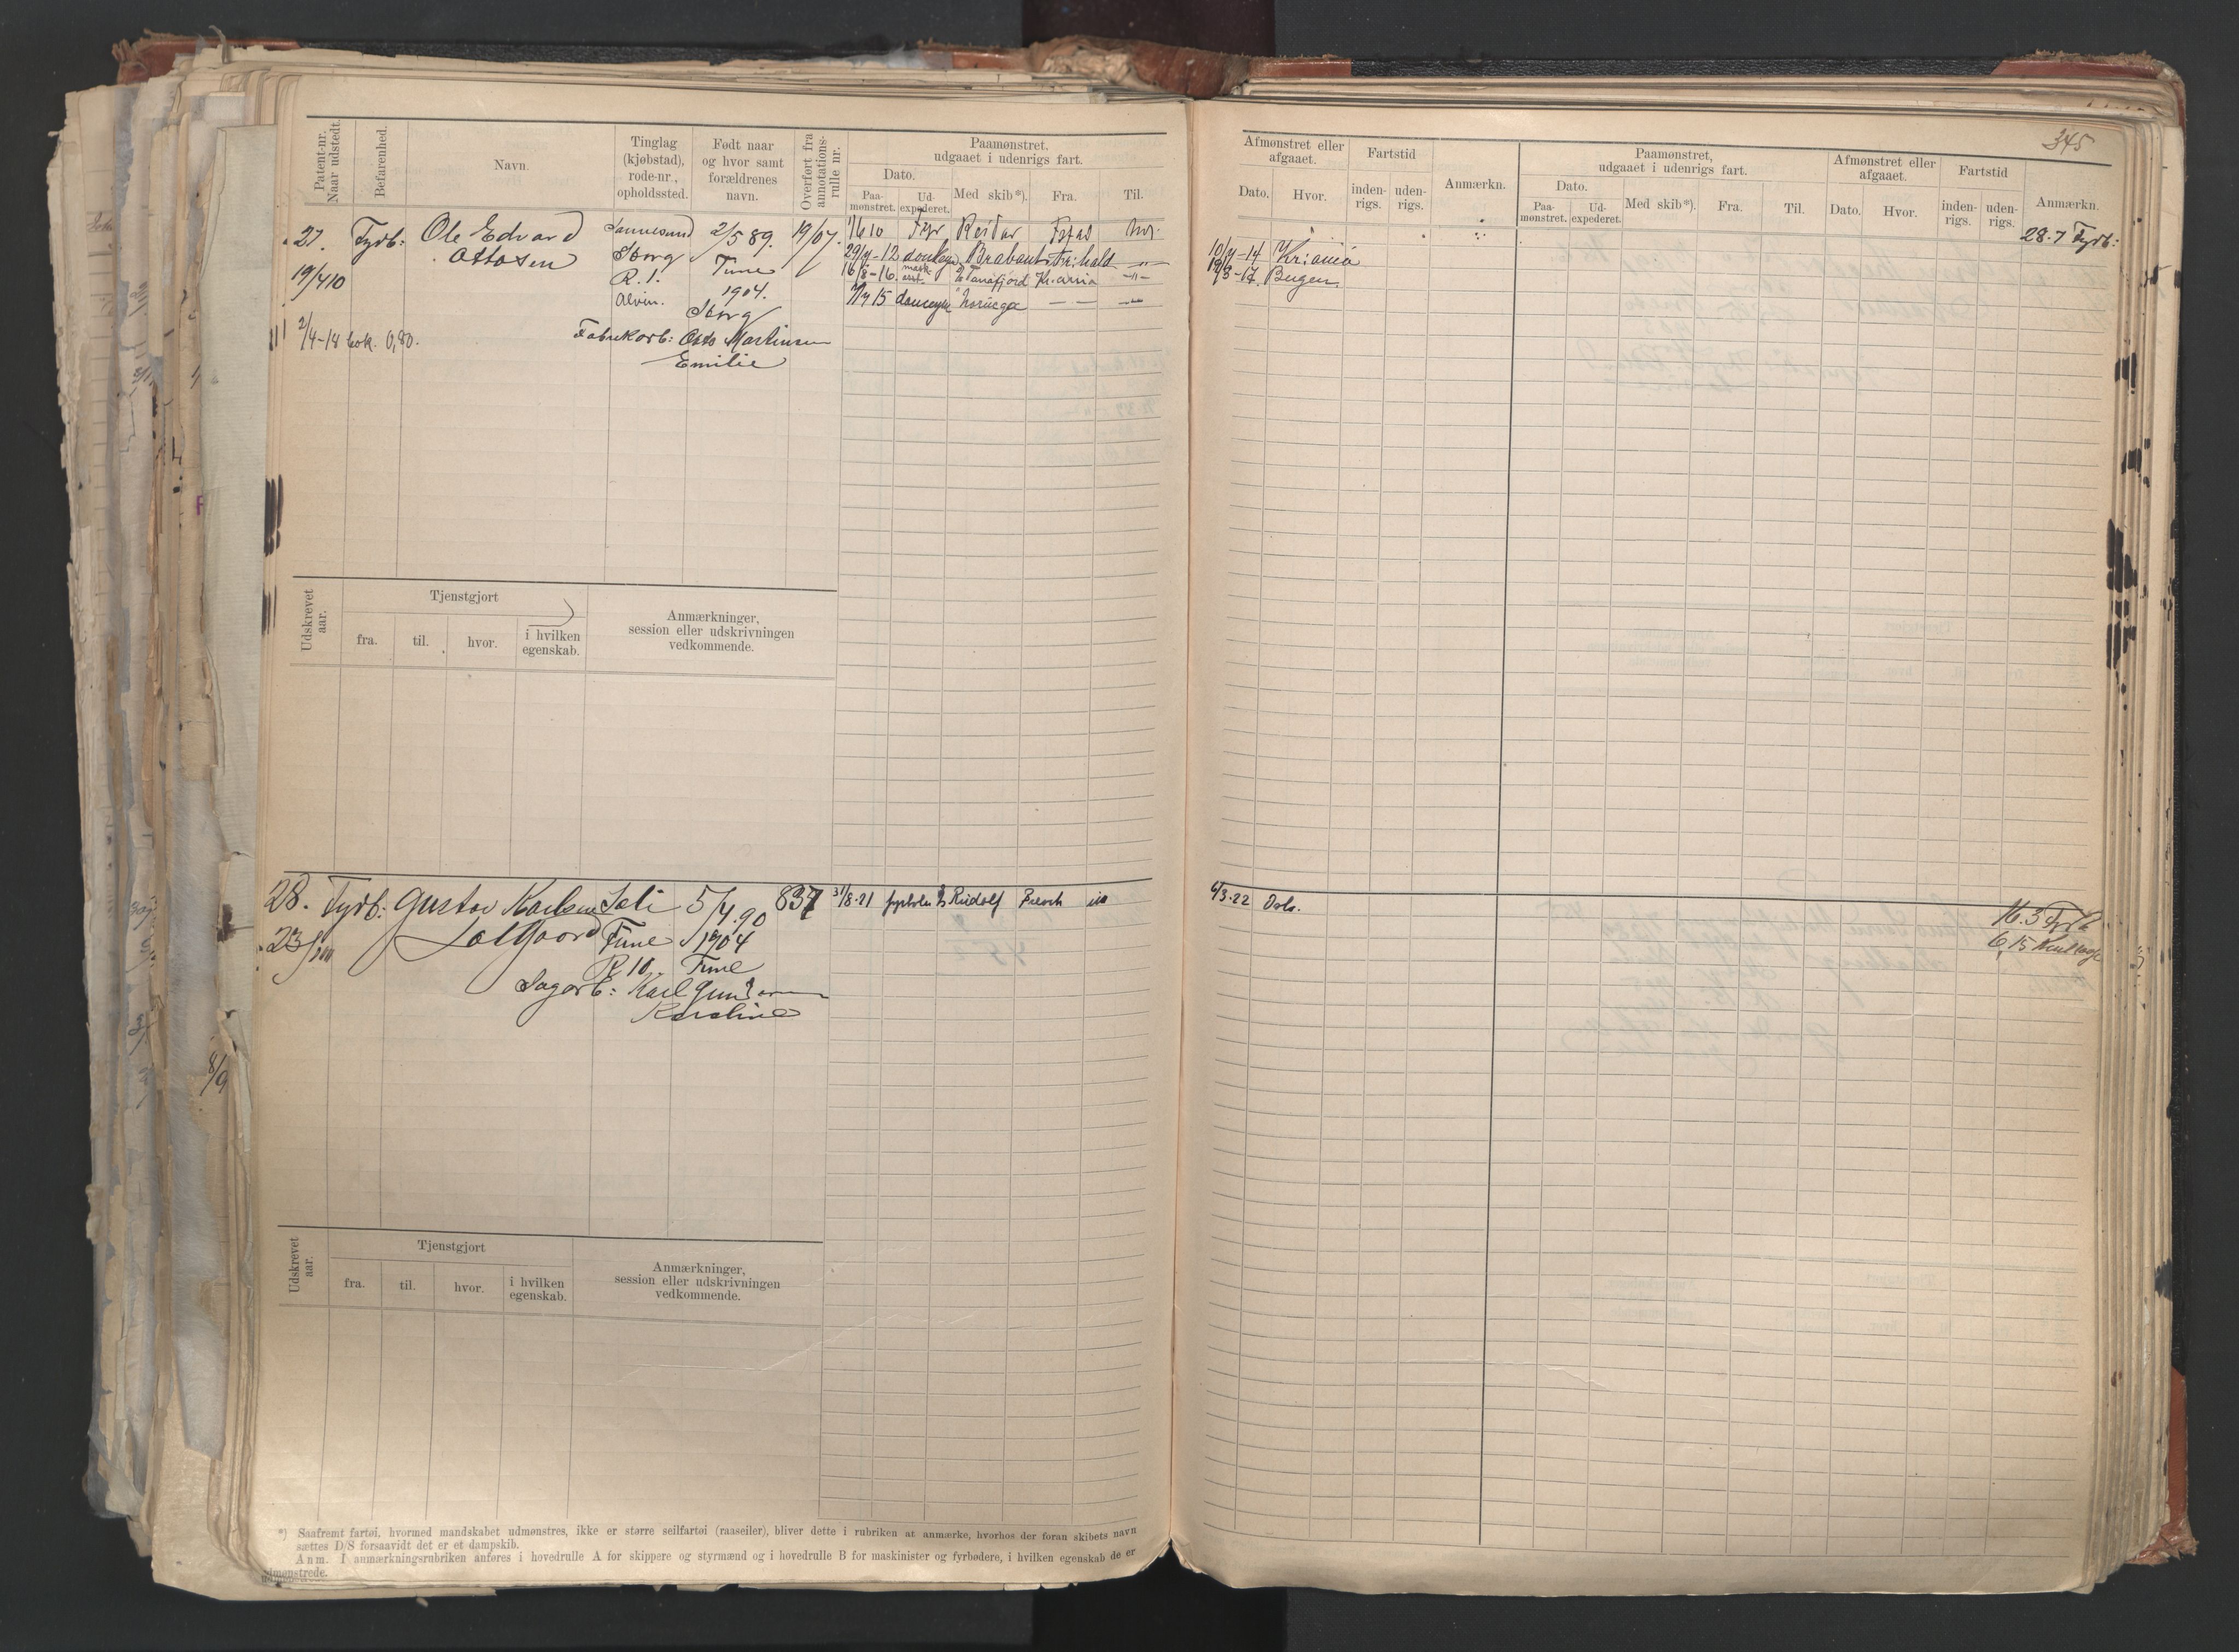 345
Patent-nr.
Naar udstedt.
Befarenhed.
Navn.
Tinglag
(kjøbstad),
rode-nr.,
opholdssted.
Født naar
og hvor samt
forældrenes
navn.
Overført fra
annotations-
rulle nr.
Paamønstret,
udgaaet i udenrigs fart.
Dato.
Paa-
mønstret.
Ud-
expederet.
Med skib*).
Fra.
Til.
Afmønstret eller
afgaaet.
Dato.
Hvor.
Fartstid
inden-
rigs.
uden-
rigs.
Anmærkn.
Paamønstret,
udgaaet i udenrigs fart.
Dato.
Paa-
mønstret.
Ud-
expederet.
Med skib*).
Fra.
Til.
Afmønstret eller
afgaaet.
Dato.
Hvor.
Fartstid
inden-
rigs.
uden-
rigs.
Anmærkn.
27. Fyrb: Ole Edvard
Ottosen
19/4 10
2/4-18 bok. 0,80.
Sannesund
Sborg
R. 1.
Alvin.
2/5 89.
Tune
1904.
Sborg
Fabrikarb: Otto Martinsen
Emilie
19/07.
1/6 10 Fyr Reidar
29/4-12 donkeym Brabant Fr.hald -"-
16/8-16. mask. asst. Tanafjord Kr.ania -"-
15 Noruega — —
10/4-14 Kr.ania
19/3-17. Bergen
28.7 Fyrb:
Udskrevet
aar.
Tjenstgjort
fra.
til.
hvor.
i hvilken
egenskab.
Anmærkninger,
session eller udskrivningen
vedkommende.
28. Fyrb: Gustav Karlsen
Soli
Tune
R 10
5/4.90
1904
Tune
Sagarb: Karl
Karoline
837
31/8-21 Rudolf
6/3-22 Oslo.
16.3 Fyrb
6.15
Udskrevet
aar.
Tjenstgjort
fra.
til.
hvor.
i hvilken
egenskab.
Anmærkninger,
session eller udskrivningen
vedkommende.
*) Saafremt fartøi, hvormed mandskabet udmønstres, ikke er større seilfartøi (raaseiler), bliver dette i rubriken at anmærke, hvorhos der foran skibets navn
sættes D/S forsaavidt det er et dampskib.
Anm. I anmærkningsrubriken anføres i hovedrulle A for skippere og styrmænd og i hovedrulle B for maskinister og fyrbødere, i hvilken egenskab de er
utmønstrede.